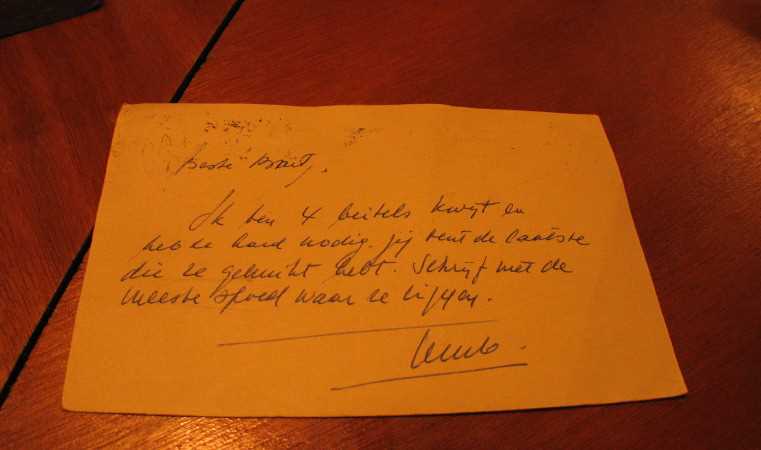 Beste Brit,
Ik ben 4 beitels kwijt en
heb ze hard nodig. Jij bent de laatste
die ze gebruikt hebt. Schrijf met de
meeste spoed waar ze liggen.